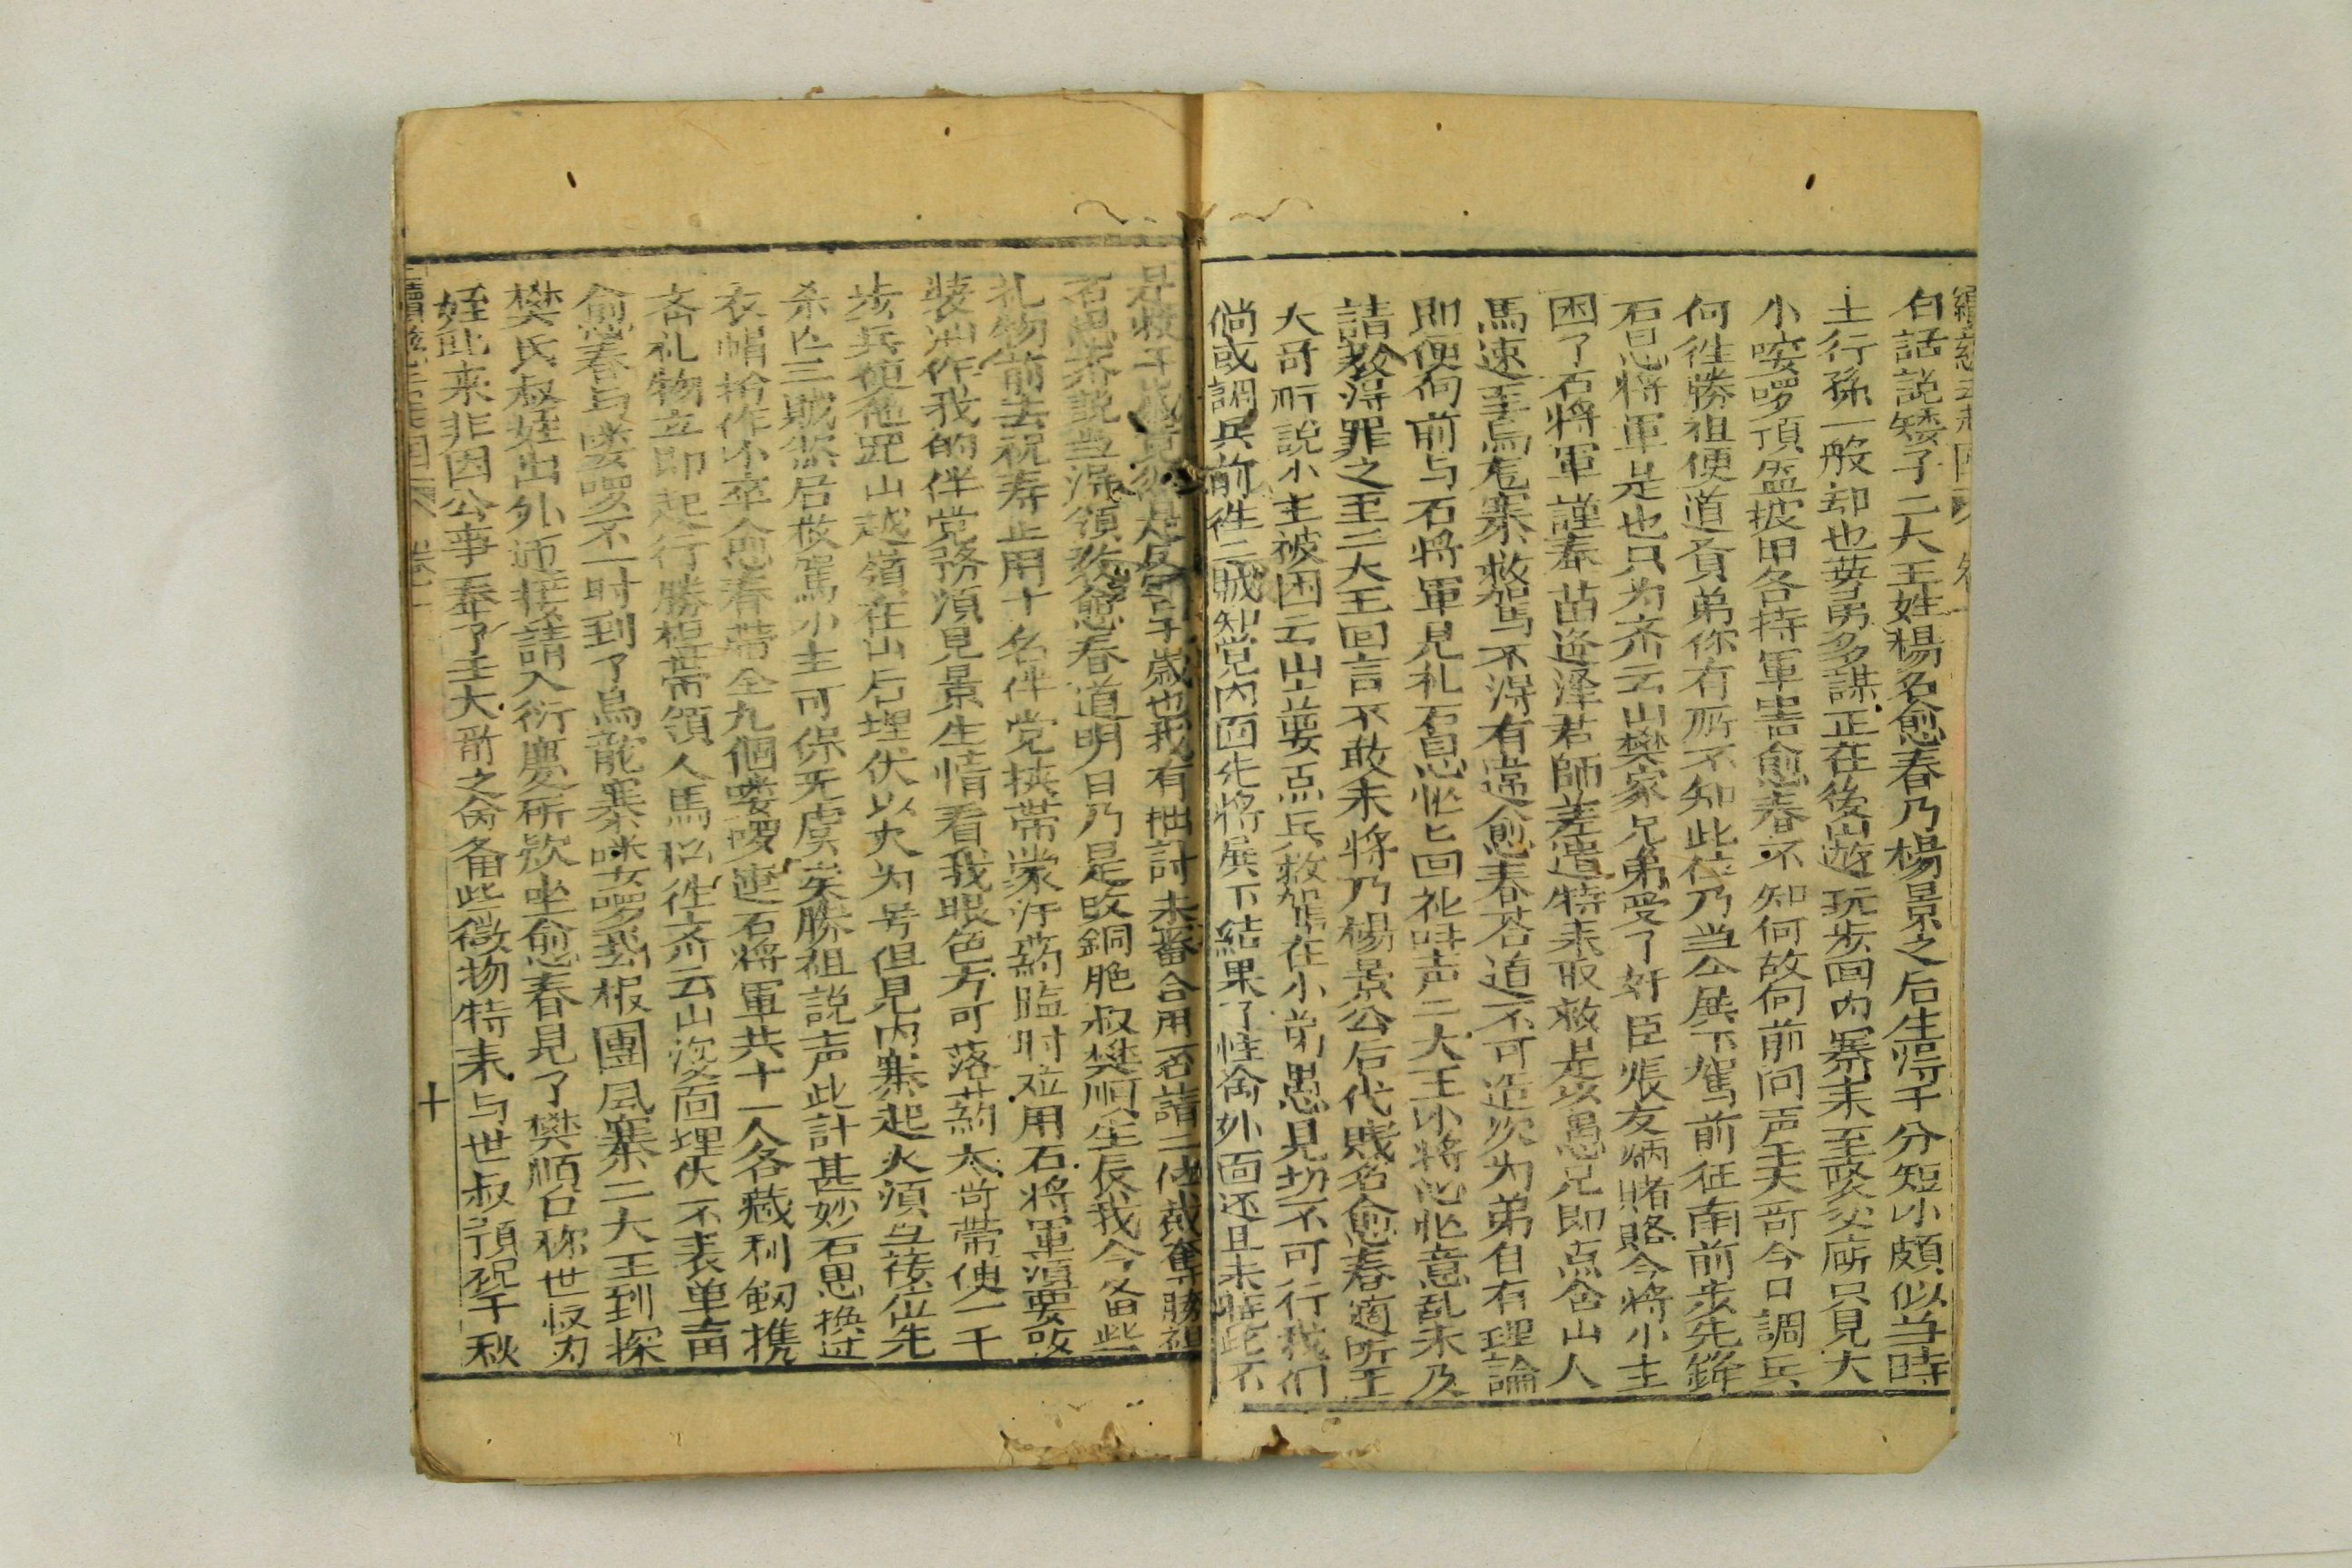 白話説矮子二大王姓楊名愈春乃楊景之后生得千分短小頗似当時
土行孫一般却也英勇多謀正在後山遊玩步回内寨来至聚义廳只見大
小喽啰頂盔披甲各持軍噐愈春不知何故向前问声王大哥今日調兵
何徃勝祖便道賢弟你有所不知此位乃当今展下駕前征南前步先鋒
石思將軍是也只为齐云山樊家兄弟受了奸臣張友炳賭賂今將小主
困了石將軍謹奉苗逢泽君師差遣特来取救是以愚兄即点合山人
馬速至烏龙寨救駕不得有違愈春荅道不可造次为弟自有理論
即便向前与石將軍見礼石思忙匕回礼呌声二大王小將心忙意乱未及
詰教得罪之至二大王回言不敢末將乃楊景公后代賤名愈春適听王
大哥所説小主被困云山要点兵救駕在小弟愚見切不可行我们
倘或調兵前徃二賊知覚内面先將展下結果了性命外面还且未特此不
是救千歲竟是反害千歲也我有一拙計未審合用否請二位裁奪勝祖
石思齐說当得領教愈春道明日乃是改銅胞叔樊順生辰我今备些
礼物前去祝寿止用十名伴党挟帶蒙汗葯臨时应用石將軍須要改
装油作我的伴党務須見景生情看我眼色方可落葯大哥帶使一千
步兵使他跎山越嶺在山后埋伏以火为号但見内寨起火須当接应先
杀匕三賊然后救駕小主可保无虞矣勝祖説声此計甚妙石思換过
衣帽扮作小卒愈春帶仝九個喽啰連石將軍共十一人各藏利劎携
斉礼物立即起行勝祖帶領人馬移徃齐云山後面埋伏不表单言
愈春与喽啰不一时到了烏龍寨咪喽啰到報團風寨二大王到探
樊氏叔姪出外迎接請入衍慶所欵坐愈春見了樊順口称世叔为
姪此来非因公事奉了王大哥之命备些微物特来与世叔預祝千秋
十